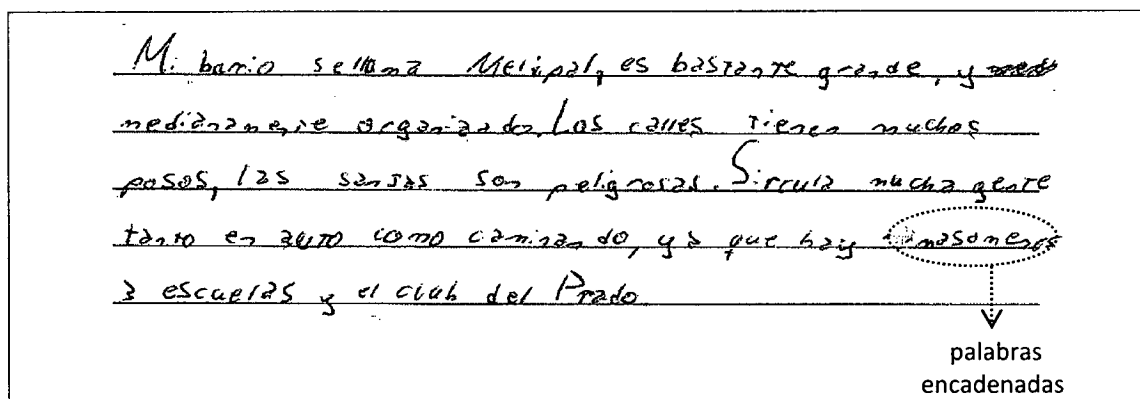 Mi barrio sellama Melipal, es bastante grande, y
medianamente organizado. Las calles tienen muchos
posos, las sansas son peligrosas. Sircula mucha gente
tanto en auto como caminando, ya que hay masomenos
3 escuelas y el club del Prado
palabras
encadenadas